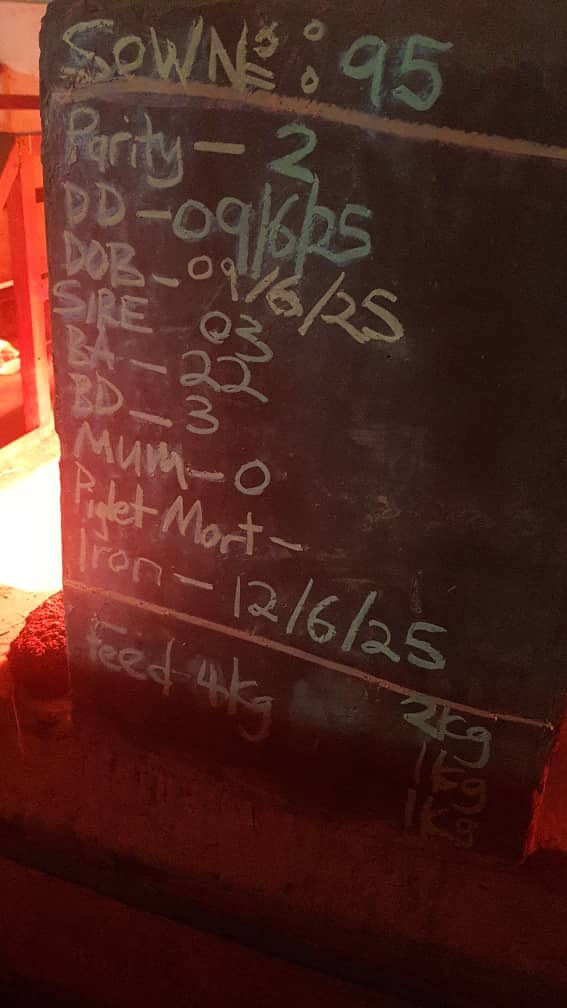 SOWNº : 95
Parity - 2
DD - 09/6/25
DOB - 09/6/25
SIRE 03
BA - 22
BD - 3
Mum - 0
Piglet Mort -
Iron - 12/6/25
Feed - 4kg 2kg
1kg
1kg